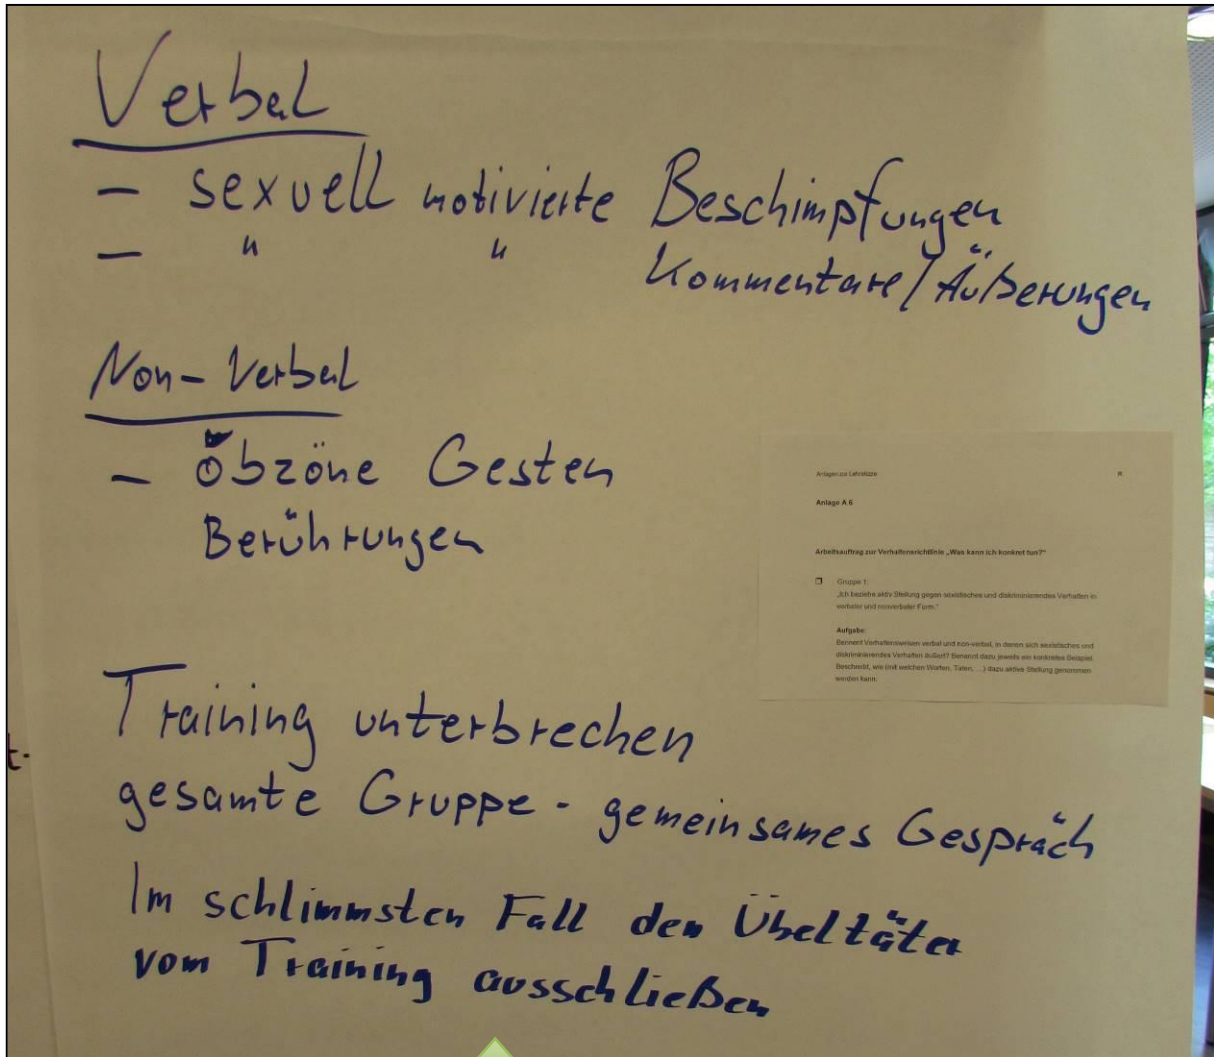 Verbal
- sexuell motivierte Beschimpfungen
- " " Kommentare/Äußerungen
Non-Verbal
- öbzöne Gesten
Berührungen
Anlagen zur Lehrskizze
Anlage A 6
Arbeitsauftrag zur Verhaltensrichtlinie „Was kann ich konkret tun?"
Gruppe 1:
„Ich beziehe aktiv Stellung gegen sexistisches und diskriminierendes Verhalten in
verbaler und nonverbaler Form."
Aufgabe:
Benennt Verhaltensweisen verbal und non-verbal, in denen sich sexistisches und
diskriminierendes Verhalten äußert? Benennt dazu jeweils ein konkretes Beispiel.
Beschreibt, wie (mit welchen Worten, Taten, ...) dazu aktive Stellung genommen
werden kann.
Training unterbrechen
gesamte Gruppe - gemeinsames Gespräch
Im schlimmsten Fall den Übeltäter
vom Training ausschließen